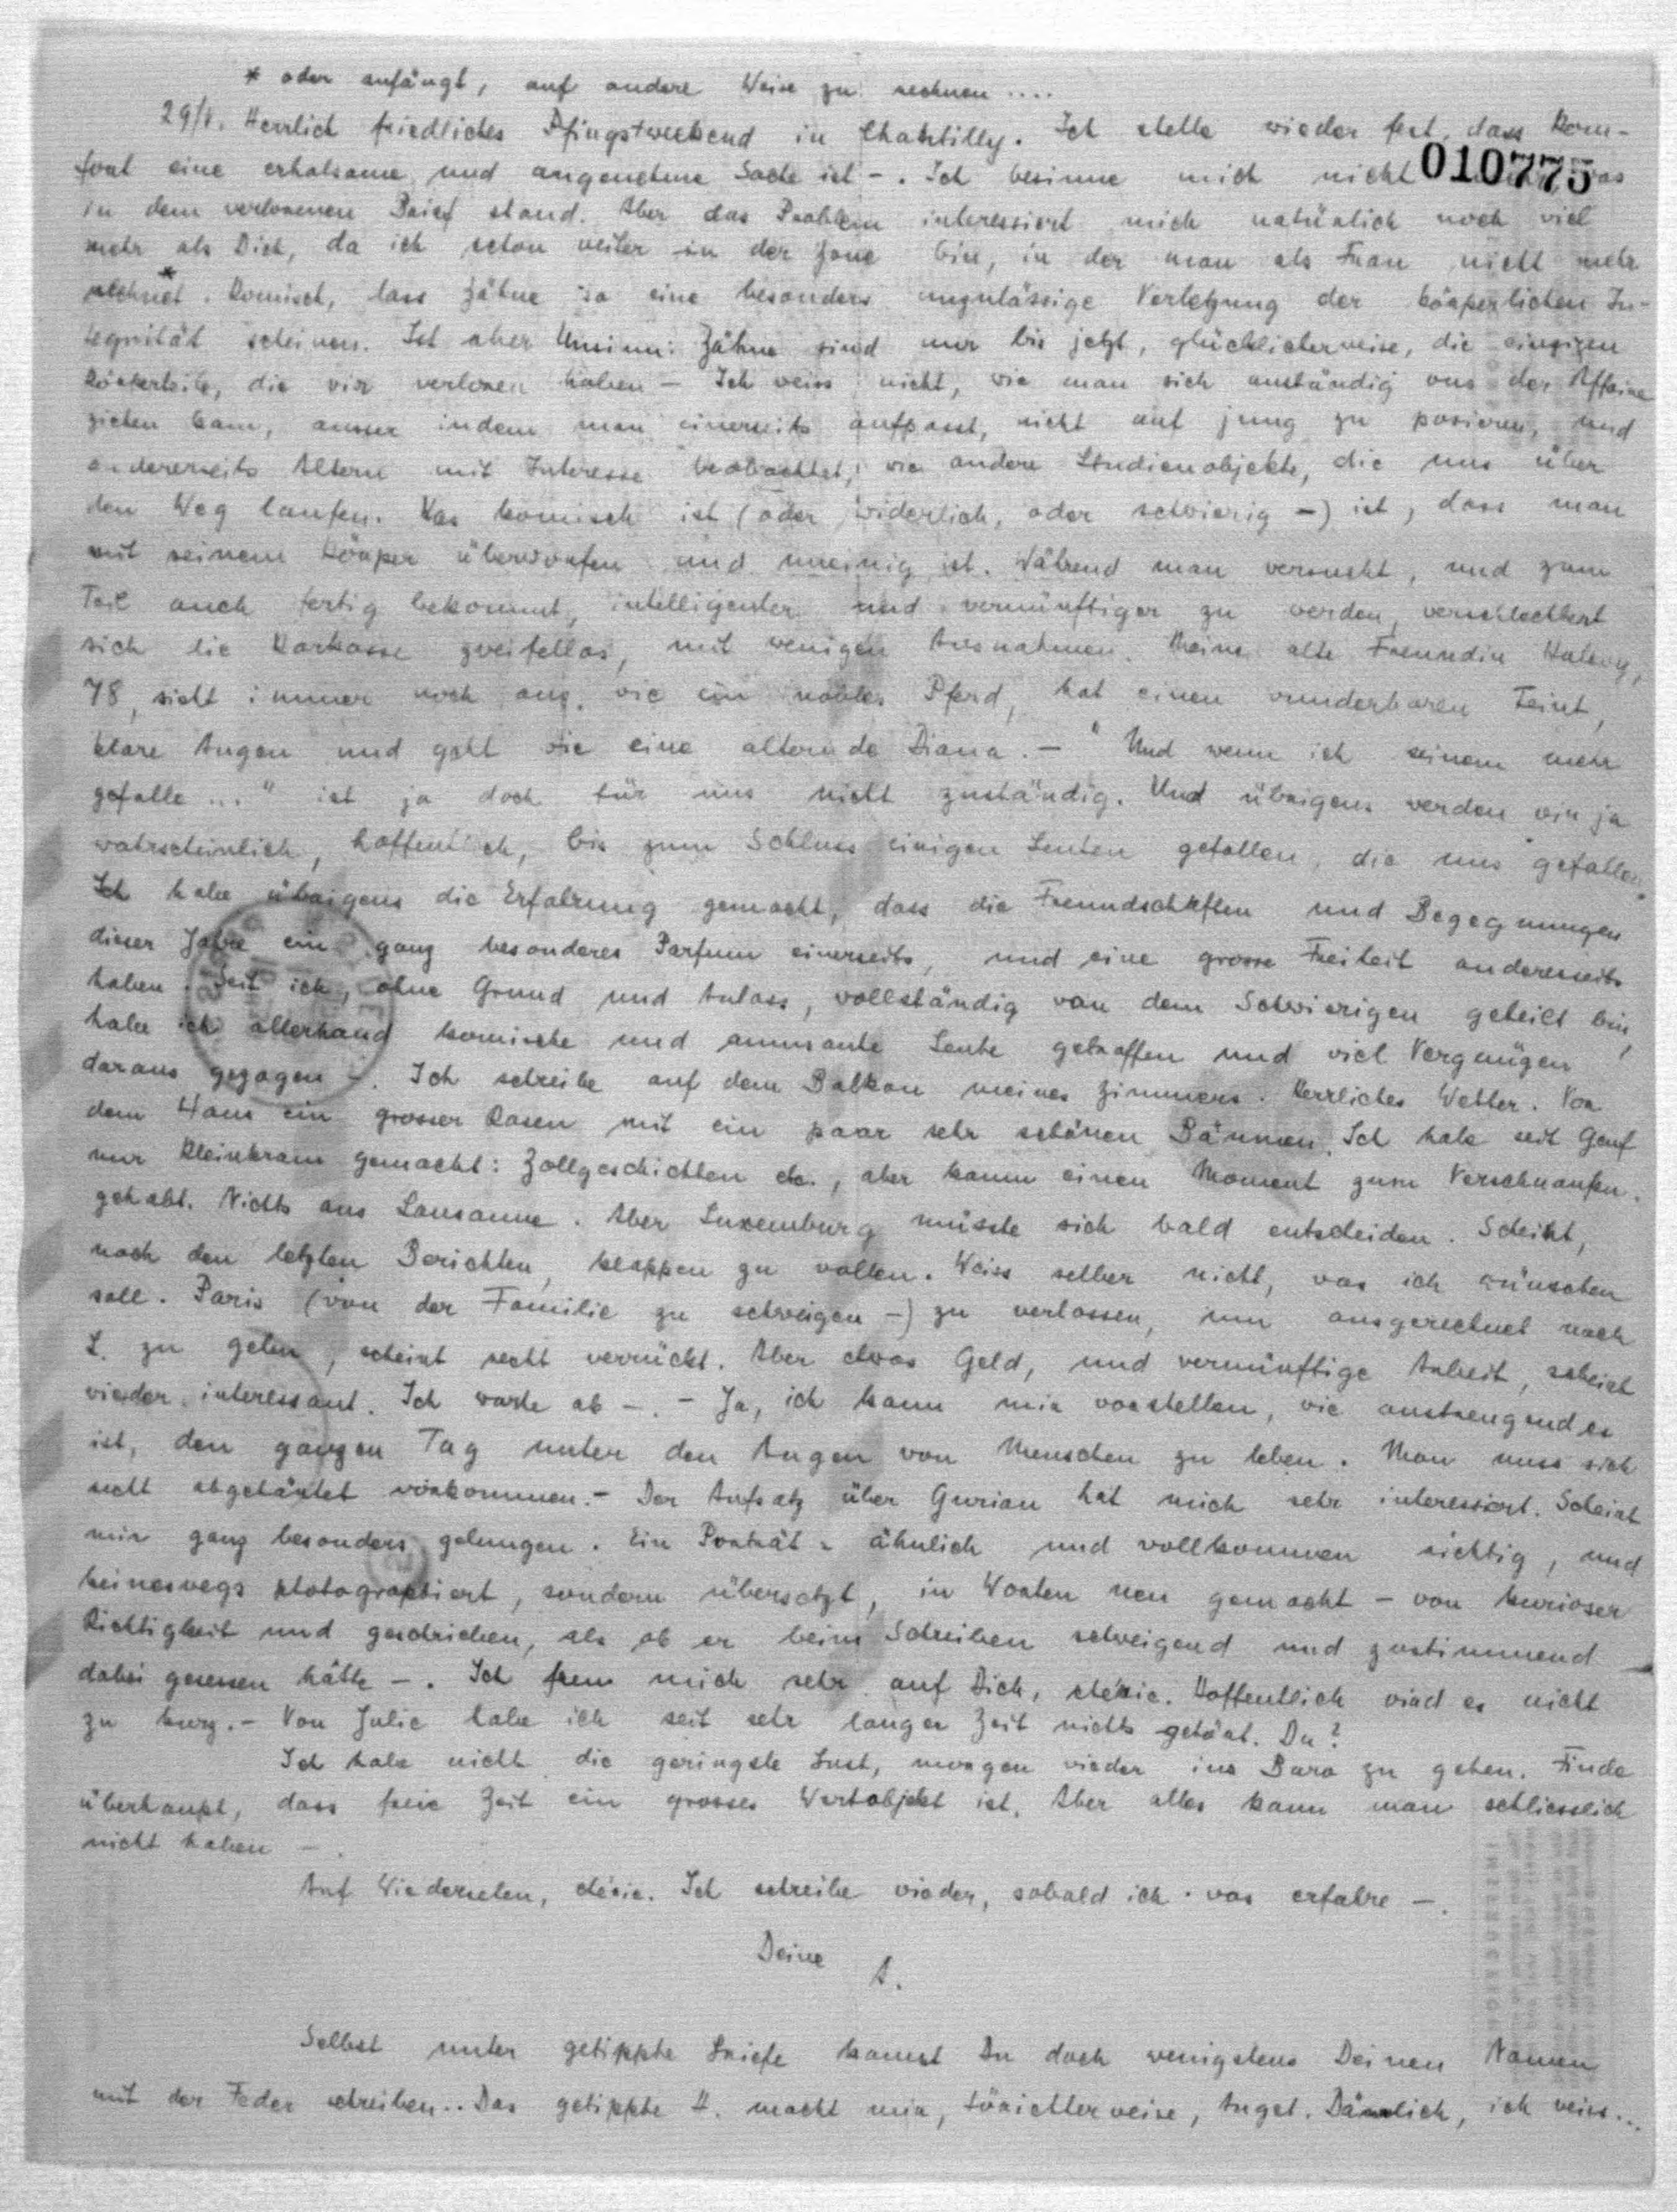 * oder anfängt, auf andere Weise zu rechnen ....
29/V. Herrlich friedliches Pfingstweekend in Chantilly. Ich stelle wieder fest, dass Kom-
fort eine erholsame und angenehme Sache ist -. Ich besinne mich nicht 010775 was
in dem verlorenen Brief stand. Aber das Problem interessiert mich natürlich noch viel
mehr als Dich, da ich schon weiter in der Zone bin, in der man als Frau nicht mehr
rechnet*. Komisch, dass Zähne so eine besonders unzulässige Verletzung der körperlichen In-
tegrität scheinen. Ist aber Unsinn: Zähne sind nur bis jetzt, glücklicherweise, die einzigen
Körperteile, die wir verloren haben - Ich weiss nicht, wie man sich anständig aus der Affaire
ziehen kann, ausser indem man einerseits aufpasst, nicht auf jung zu posieren, und
andererseits Altern mit Interesse beobachtet, wie andere Studienobjekte, die uns über
den Weg laufen. Was komisch ist (oder widerlich, oder schwierig -) ist, dass man
mit seinem Körper überworfen und uneinig ist. Während man versucht, und zum
Teil auch fertig bekommt, intelligenter und vernünftiger zu werden, verschlechtert
sich die Karkasse zweifellos, mit wenigen Ausnahmen. Meine alte Freundin Halevy,
78, sieht immer noch aus wie ein nobles Pferd, hat einen wunderbaren Teint,
klare Augen und geht wie eine alternde Diana. - "Und wenn ich keinem mehr
gefalle ..." ist ja doch für uns nicht zuständig. Und übrigens werden wir ja
wahrscheinlich, hoffentlich, bis zum Schluss einigen Leuten gefallen, die uns gefallen.
Ich habe übrigens die Erfahrung gemacht, dass die Freundschaften und Begegnungen
dieser Jahre ein ganz besonderes Parfum einerseits, und eine grosse Freiheit andererseits
haben. Seit ich, ohne Grund und Anlass, vollständig von dem Schwierigen geheilt bin,
habe ich allerhand komische und amusante Leute getroffen und viel Vergnügen
daraus gezogen -. Ich schreibe auf dem Balkon meines Zimmers. Herrliches Wetter. Vor
dem Haus ein grosser Rasen mit ein paar sehr schönen Bäumen. Ich habe seit Genf
nur Kleinkram gemacht: Zollgeschichten etc., aber kaum einen Moment zum Verschnaufen.
gehabt. Nichts aus Lausanne. Aber Luxemburg müsste sich bald entscheiden. Scheint,
nach den letzten Berichten, klappen zu wollen. Weiss selber nicht, was ich wünschen
soll. Paris (von der Familie zu schweigen -) zu verlassen, um ausgerechnet nach
L. zu gehen, scheint recht verrückt. Aber etwas Geld, und vernünftige Arbeit, scheint
wieder interessant. Ich warte ab -. - Ja, ich kann mir vorstellen, wie anstrengend es
ist, den ganzen Tag unter den Augen von Menschen zu leben. Man muss sich
recht abgehäutet vorkommen. - Der Aufsatz über Gurian hat mich sehr interessiert. Scheint
mir ganz besonders gelungen. Ein Porträt - ähnlich und vollkommen richtig, und
keineswegs photographiert, sondern übersetzt, in Worten neu gemacht - von kurioser
Richtigkeit und geschrieben, als ob er beim Schreiben schweigend und zustimmend
dabei gesessen hätte -. Ich freue mich sehr auf Dich, chérie. Hoffentlich wird es nicht
zu kurz. - Von Julie habe ich seit sehr langer Zeit nichts gehört. Du?
Ich habe nicht die geringste Lust, morgen wieder ins Buro zu gehen. Finde
überhaupt, dass freie Zeit ein grosses Wertobjekt ist. Aber alles kann man schliesslich
nicht haben -.
Auf Wiedersehen, chérie. Ich schreibe wieder, sobald ich was erfahre -.
Deine A.
Selbst unter getippte Briefe kannst Du doch wenigstens Deinen Namen
mit der Feder schreiben.. Das getippte H. macht mir, törichterweise, Angst. Dämlich, ich weiss...